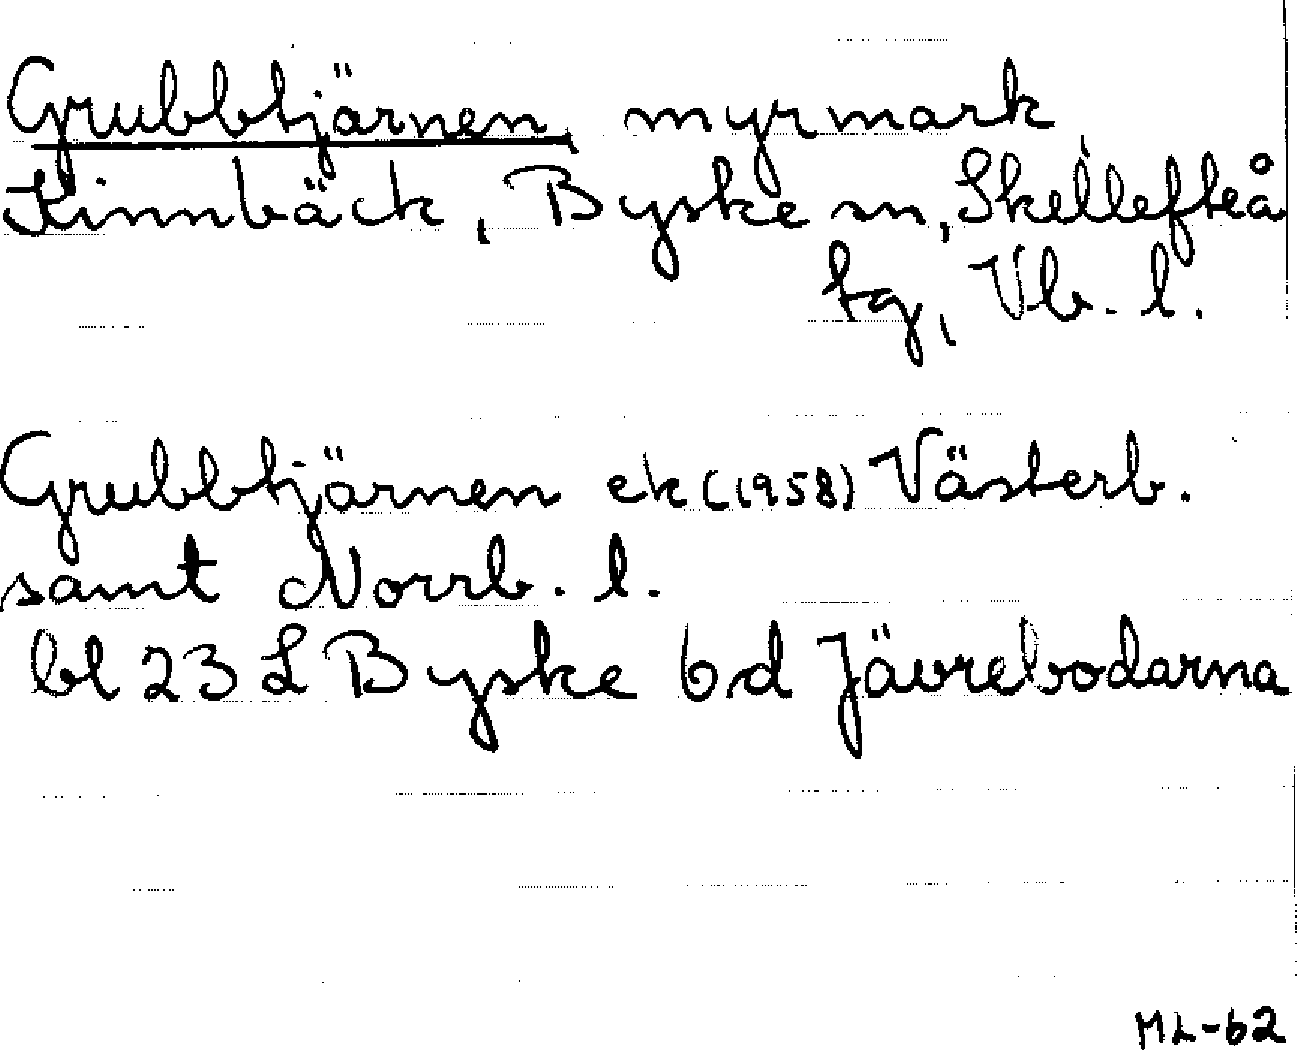 Grubbtjärnen, myrmark
Kinnbäck, Byske sn, Skellefteå
tg, Vb. l.
Grubbtjärnen ek (1958) Västerb.
samt Norrb. l.
bl 23 L Byske 6d Jävrebodarna
ML-62